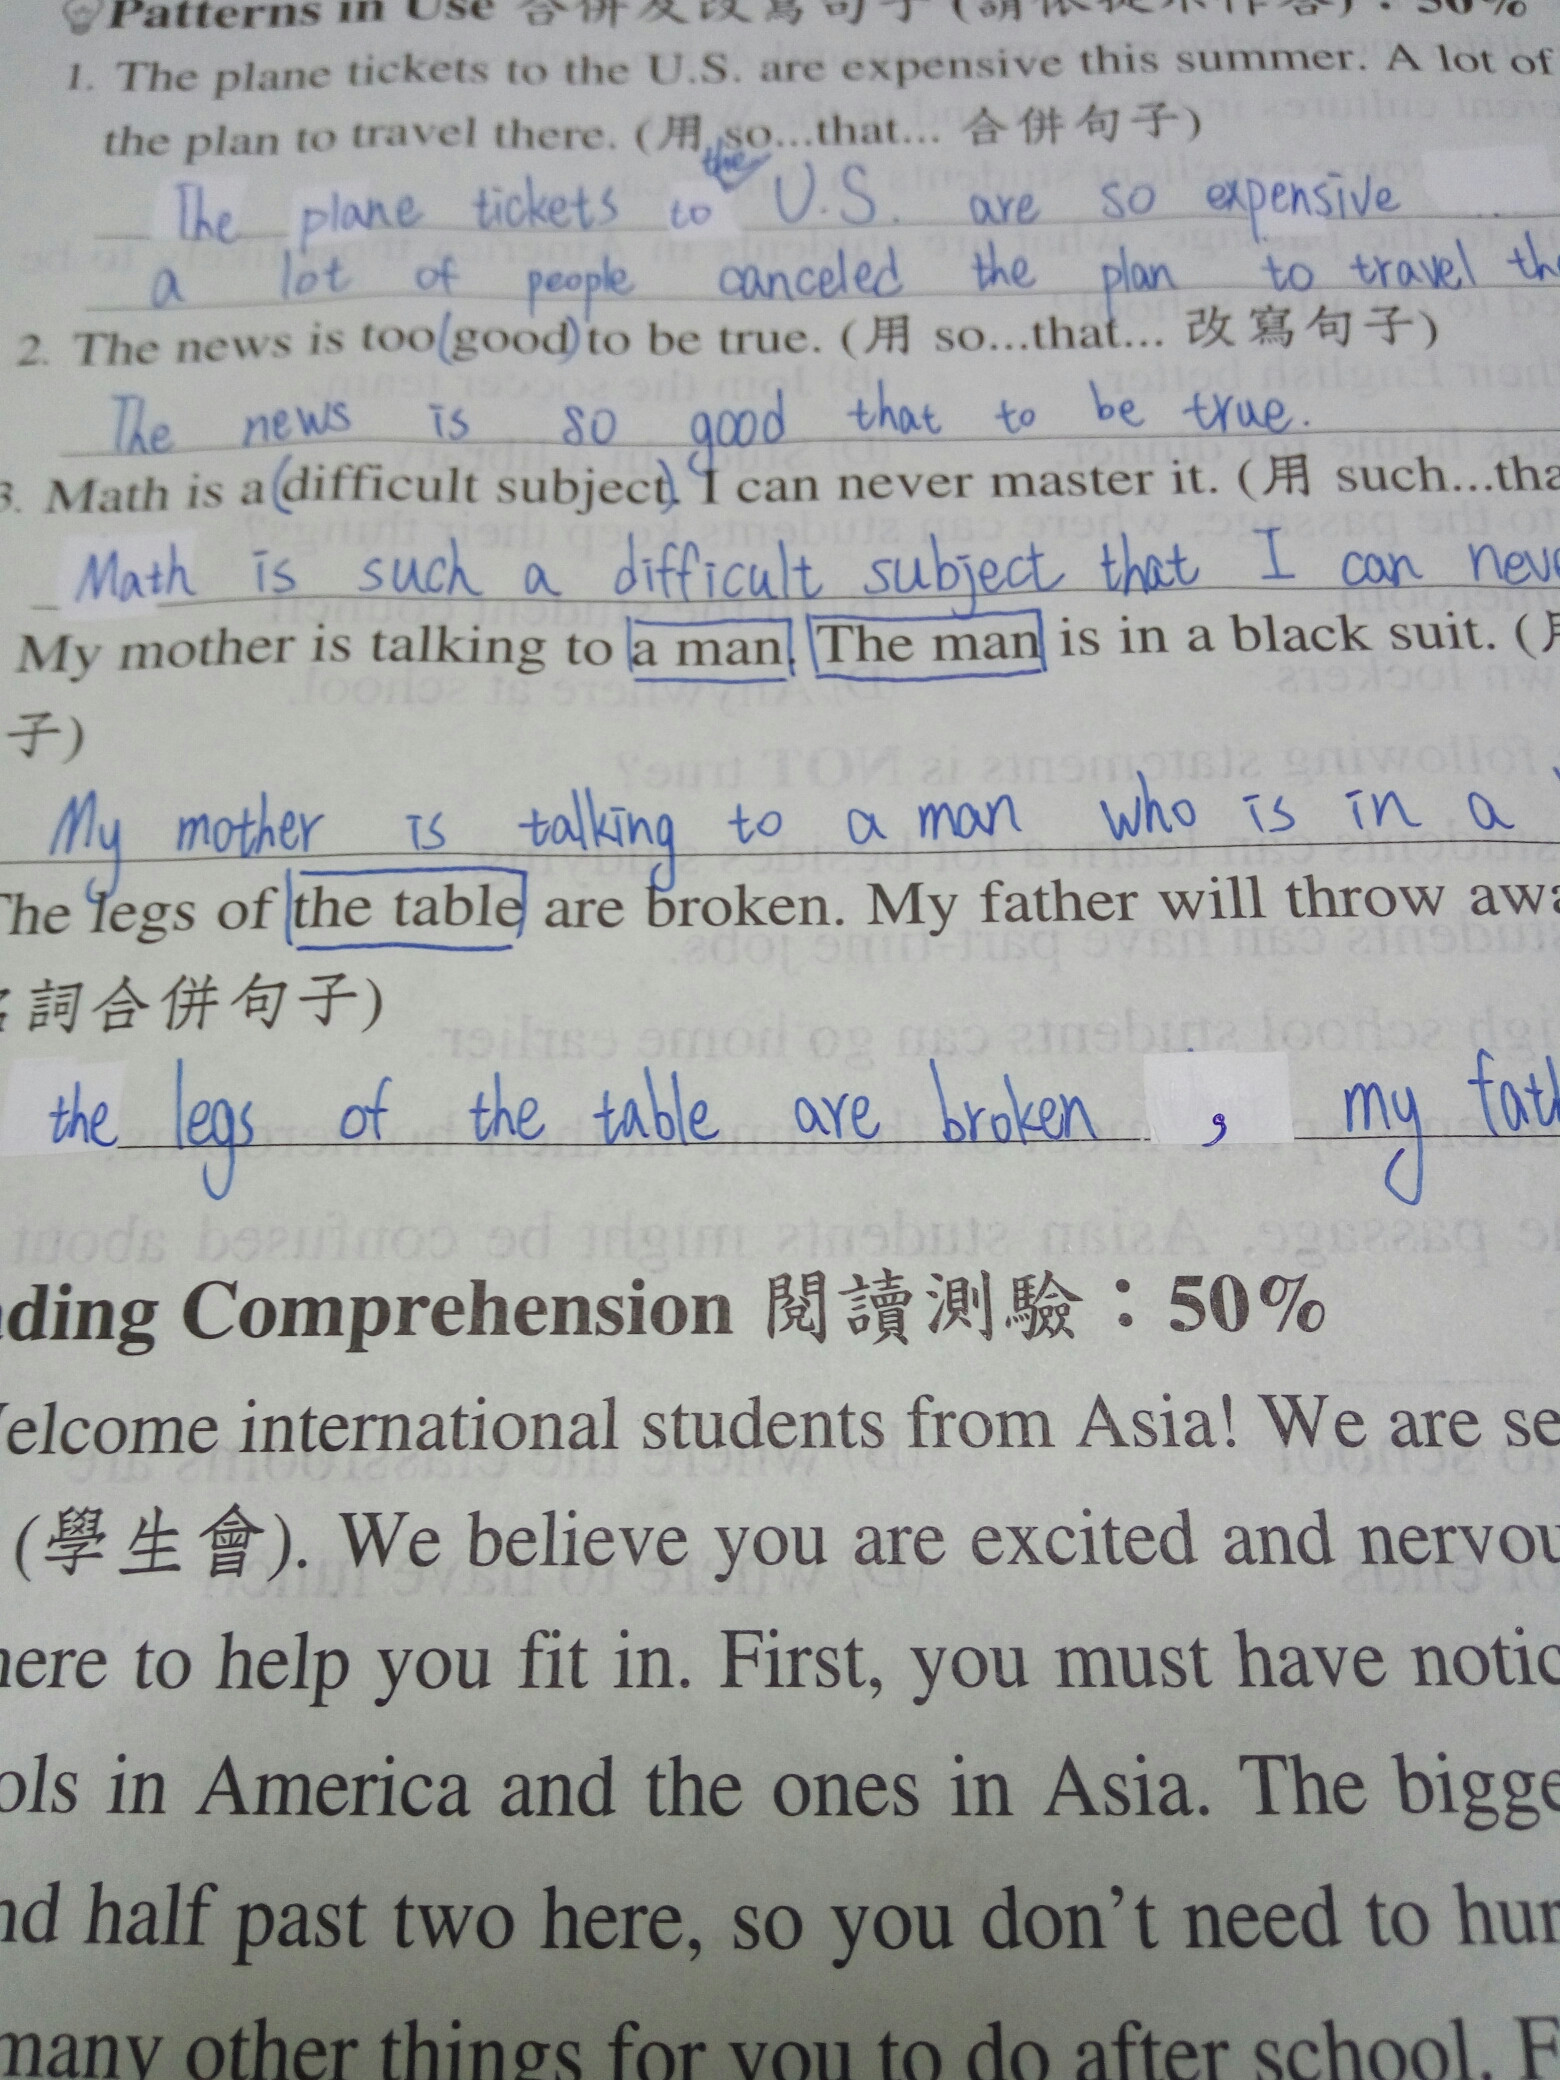 Patterns in Use 合併及改寫句子 (請依提示作答)：50%
1. The plane tickets to the U.S. are expensive this summer. A lot of
the plan to travel there. (用 so...that... 合併句子)
the
The plane tickets to U.S. are so expensive
a lot of people canceled the plan to travel the
2. The news is too (good) to be true. (用 so...that... 改寫句子)
The news is so good that to be true.
3. Math is a (difficult subject). I can never master it. (用 such...tha
Math is such a difficult subject that I can neve
My mother is talking to a man. The man is in a black suit. (
子)
My mother is talking to a man who is in a
The legs of the table are broken. My father will throw awa
詞合併句子)
the legs of the table are broken , my fath
ding Comprehension 閱讀測驗：50%
elcome international students from Asia! We are se
(學生會). We believe you are excited and nervou
here to help you fit in. First, you must have notic
ols in America and the ones in Asia. The bigge
nd half past two here, so you don't need to hur
many other things for you to do after school. F